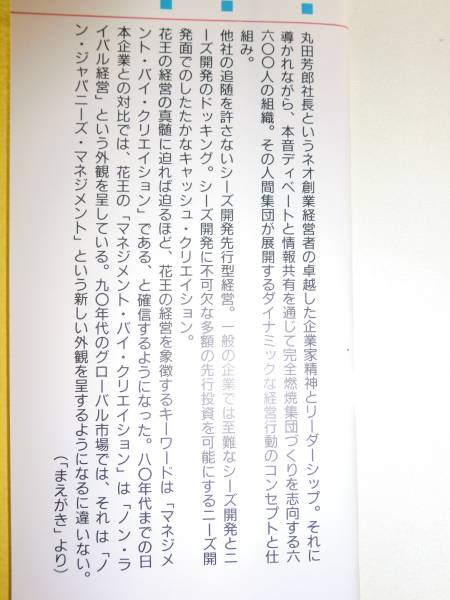 丸田芳郎社長というネオ創業経営者の卓越した企業家精神とリーダーシップ。それに
導かれながら、本音ディベートと情報共有を通じて完全燃焼集団づくりを志向する六
六〇〇人の組織。その人間集団が展開するダイナミックな経営行動のコンセプトと仕
組み。
他社の追随を許さないシーズ開発先行型経営。一般の企業では至難なシーズ開発とニ
ーズ開発のドッキング。シーズ開発に不可欠な多額の先行投資を可能にするニーズ開
発面でのしたたかなキャッシュ・クリエイション。
花王の経営の真髄に迫れば迫るほど、花王の経営を象徴するキーワードは「マネジメ
ント・バイ・クリエイション」である、と確信するようになった。八〇年代までの日
本企業との対比では、花王の「マネジメント・バイ・クリエイション」は「ノン・ラ
イバル経営」という外観を呈している。九〇年代のグローバル市場では、それは「ノ
ン・ジャパニーズ・マネジメント」という新しい外観を呈するようになるに違いない。
（「まえがき」より）